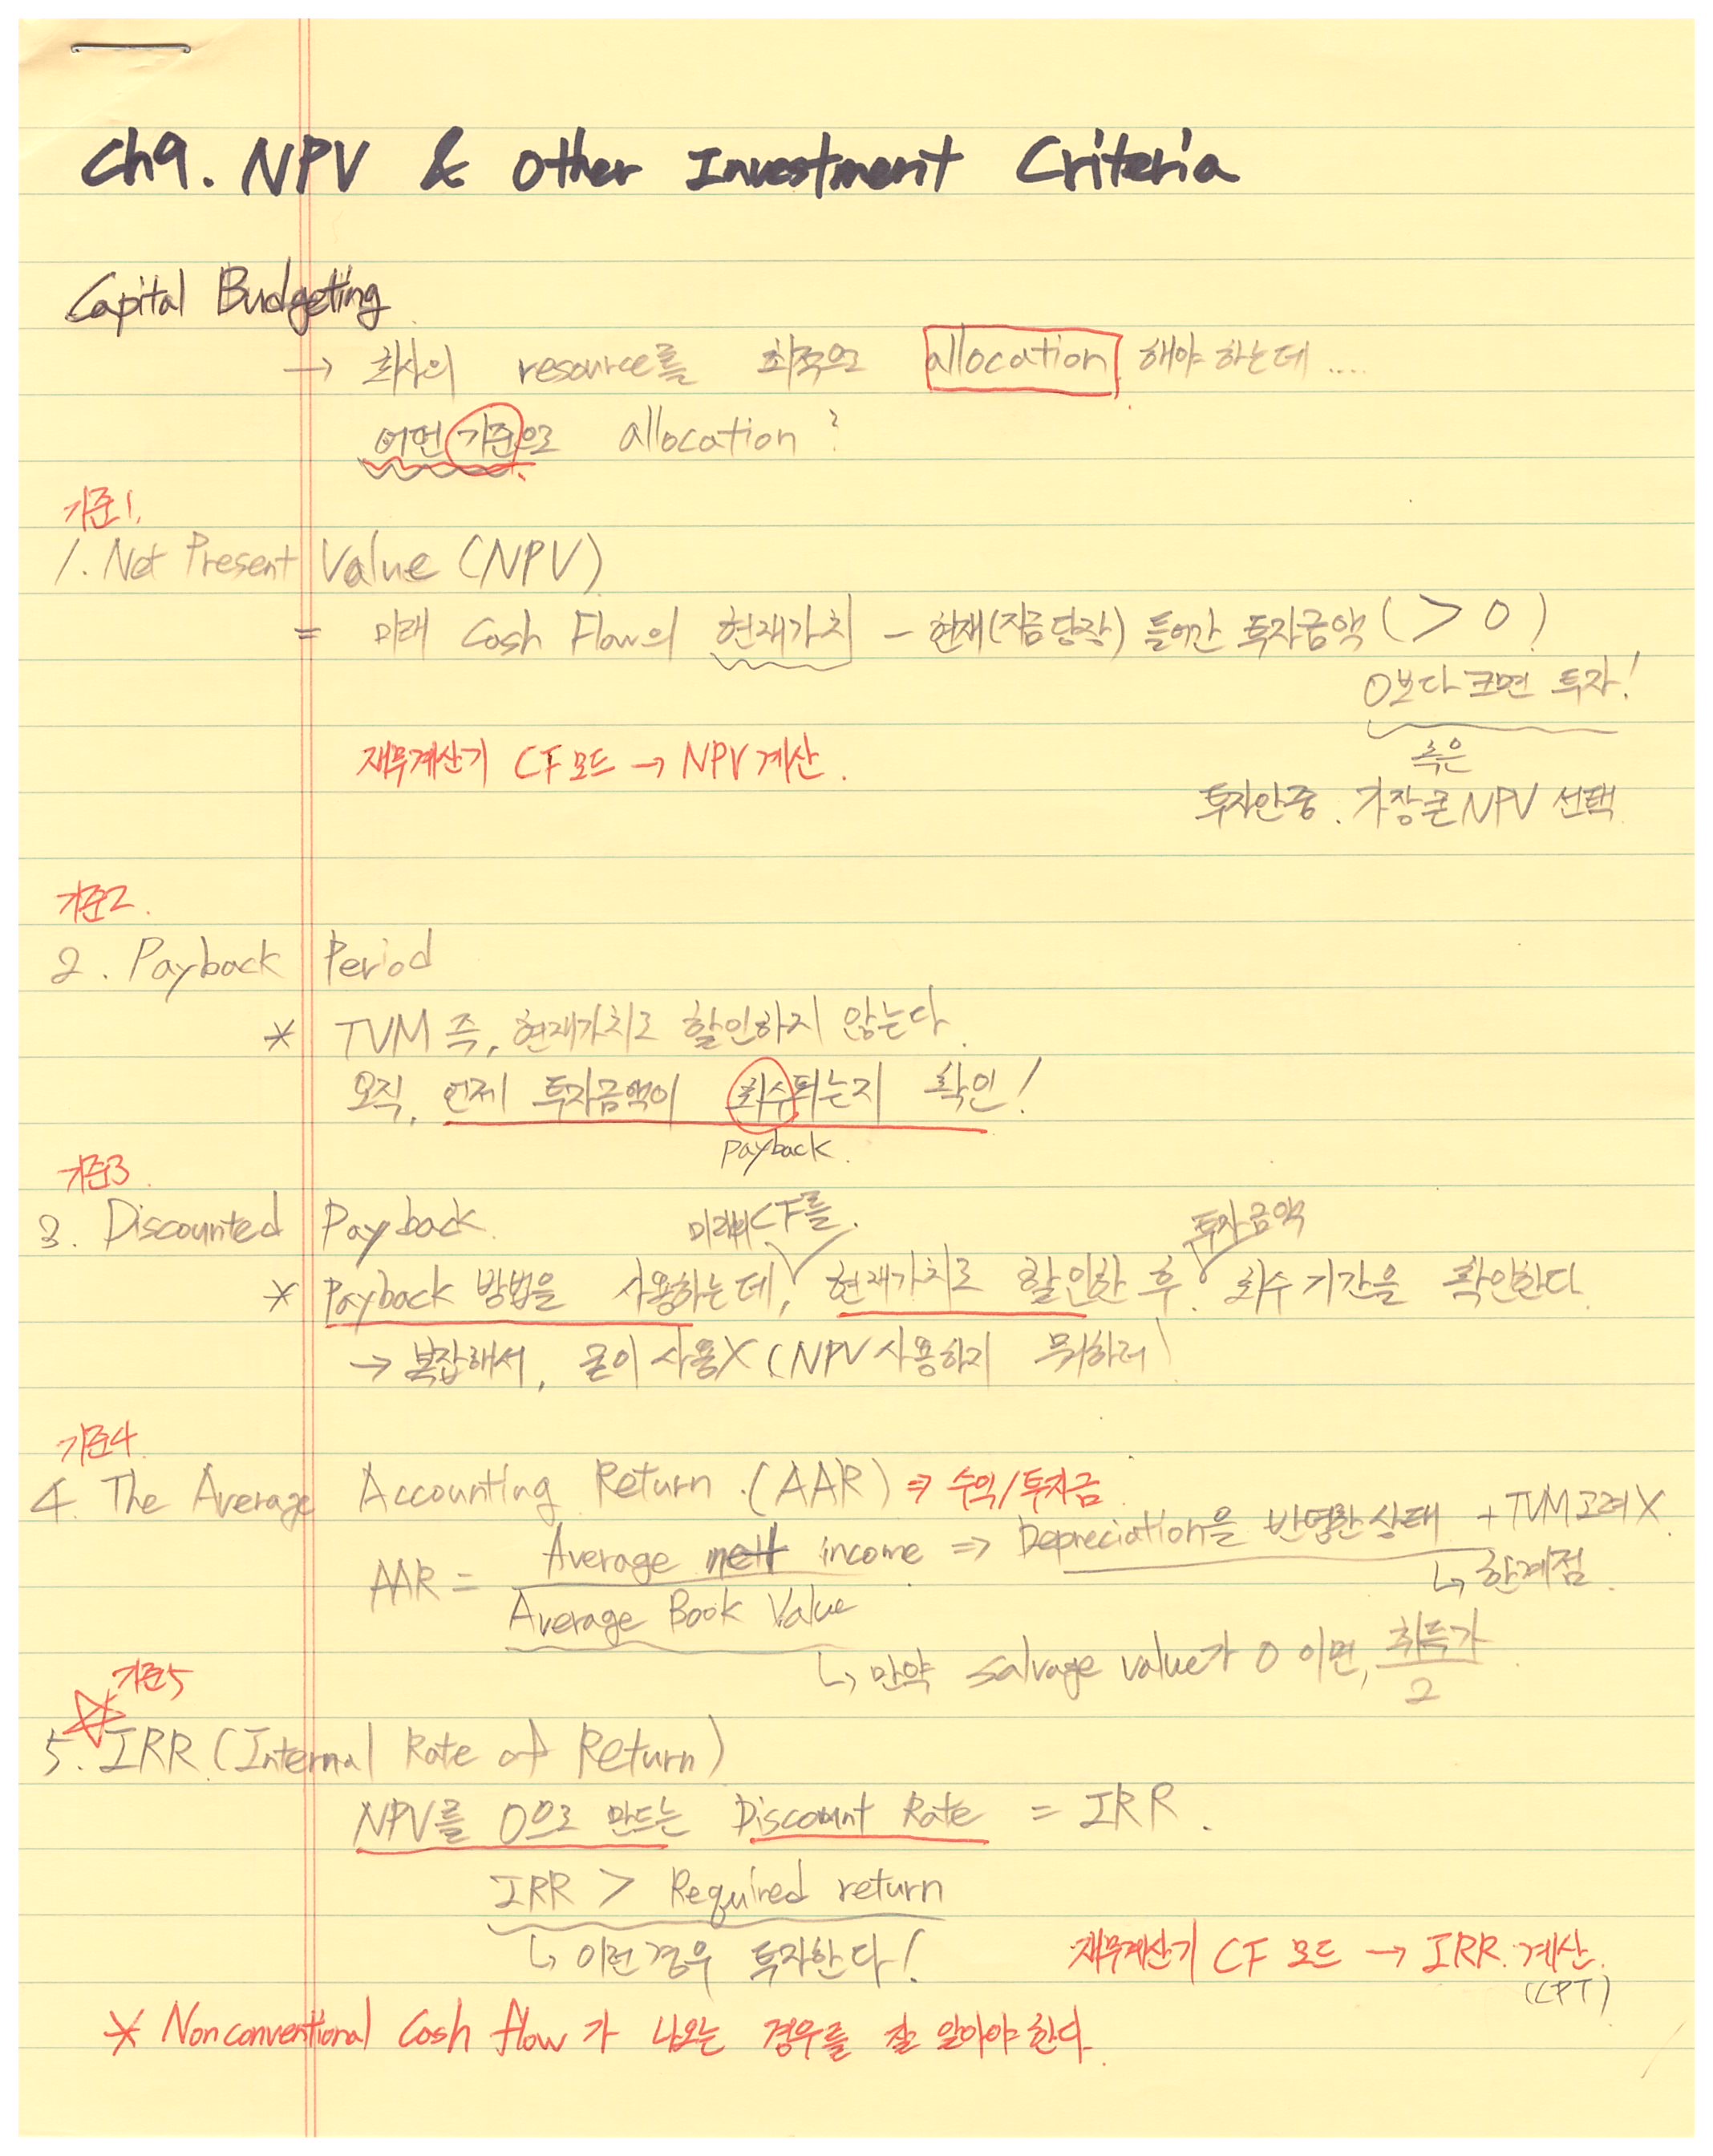 Ch9. NPV & Other Investment Criteria
Capital Budgeting
→ 회사의 resource를 최적으로 allocation 해야 하는데 ....
어떤 기준으로 allocation?
기준1.
1. Net Present Value (NPV)
= 미래 Cash Flow의 현재가치 - 현재(지금 당장) 들어간 투자금액 ( > 0 )
0보다 크면 투자!
혹은
재무계산기 CF 모드 → NPV 계산.
투자안 중. 가장 큰 NPV 선택
기준2.
2. Payback Period
* TVM 즉, 현재가치로 할인하지 않는다.
오직, 언제 투자금액이 회수되는지 확인!
payback.
기준3
3. Discounted Payback.
미래의 CF를. 투자금액
* Payback 방법을 사용하는데, 현재가치로 할인한 후. 회수 기간을 확인한다.
→ 복잡해서, 굳이 사용X (NPV 사용하지 뭐하러)
기준4.
4. The Average Accounting Return. (AAR) ⇒ 수익/투자금
AAR = Average net income ⇒ Depreciation을 반영한 상태 + TVM 고려 X.
↳ 한계점.
Average Book Value
↳ 만약 salvage value가 0 이면, 취득가
2
기준5
☆
5. IRR (Internal Rate of Return)
NPV를 0으로 만드는 Discount Rate = IRR.
IRR > Required return
↳ 이런 경우 투자한다!
재무계산기 CF 모드 → IRR. 계산.
(CPT)
* Nonconventional Cash flow 가 나오는 경우를 잘 알아야 한다.